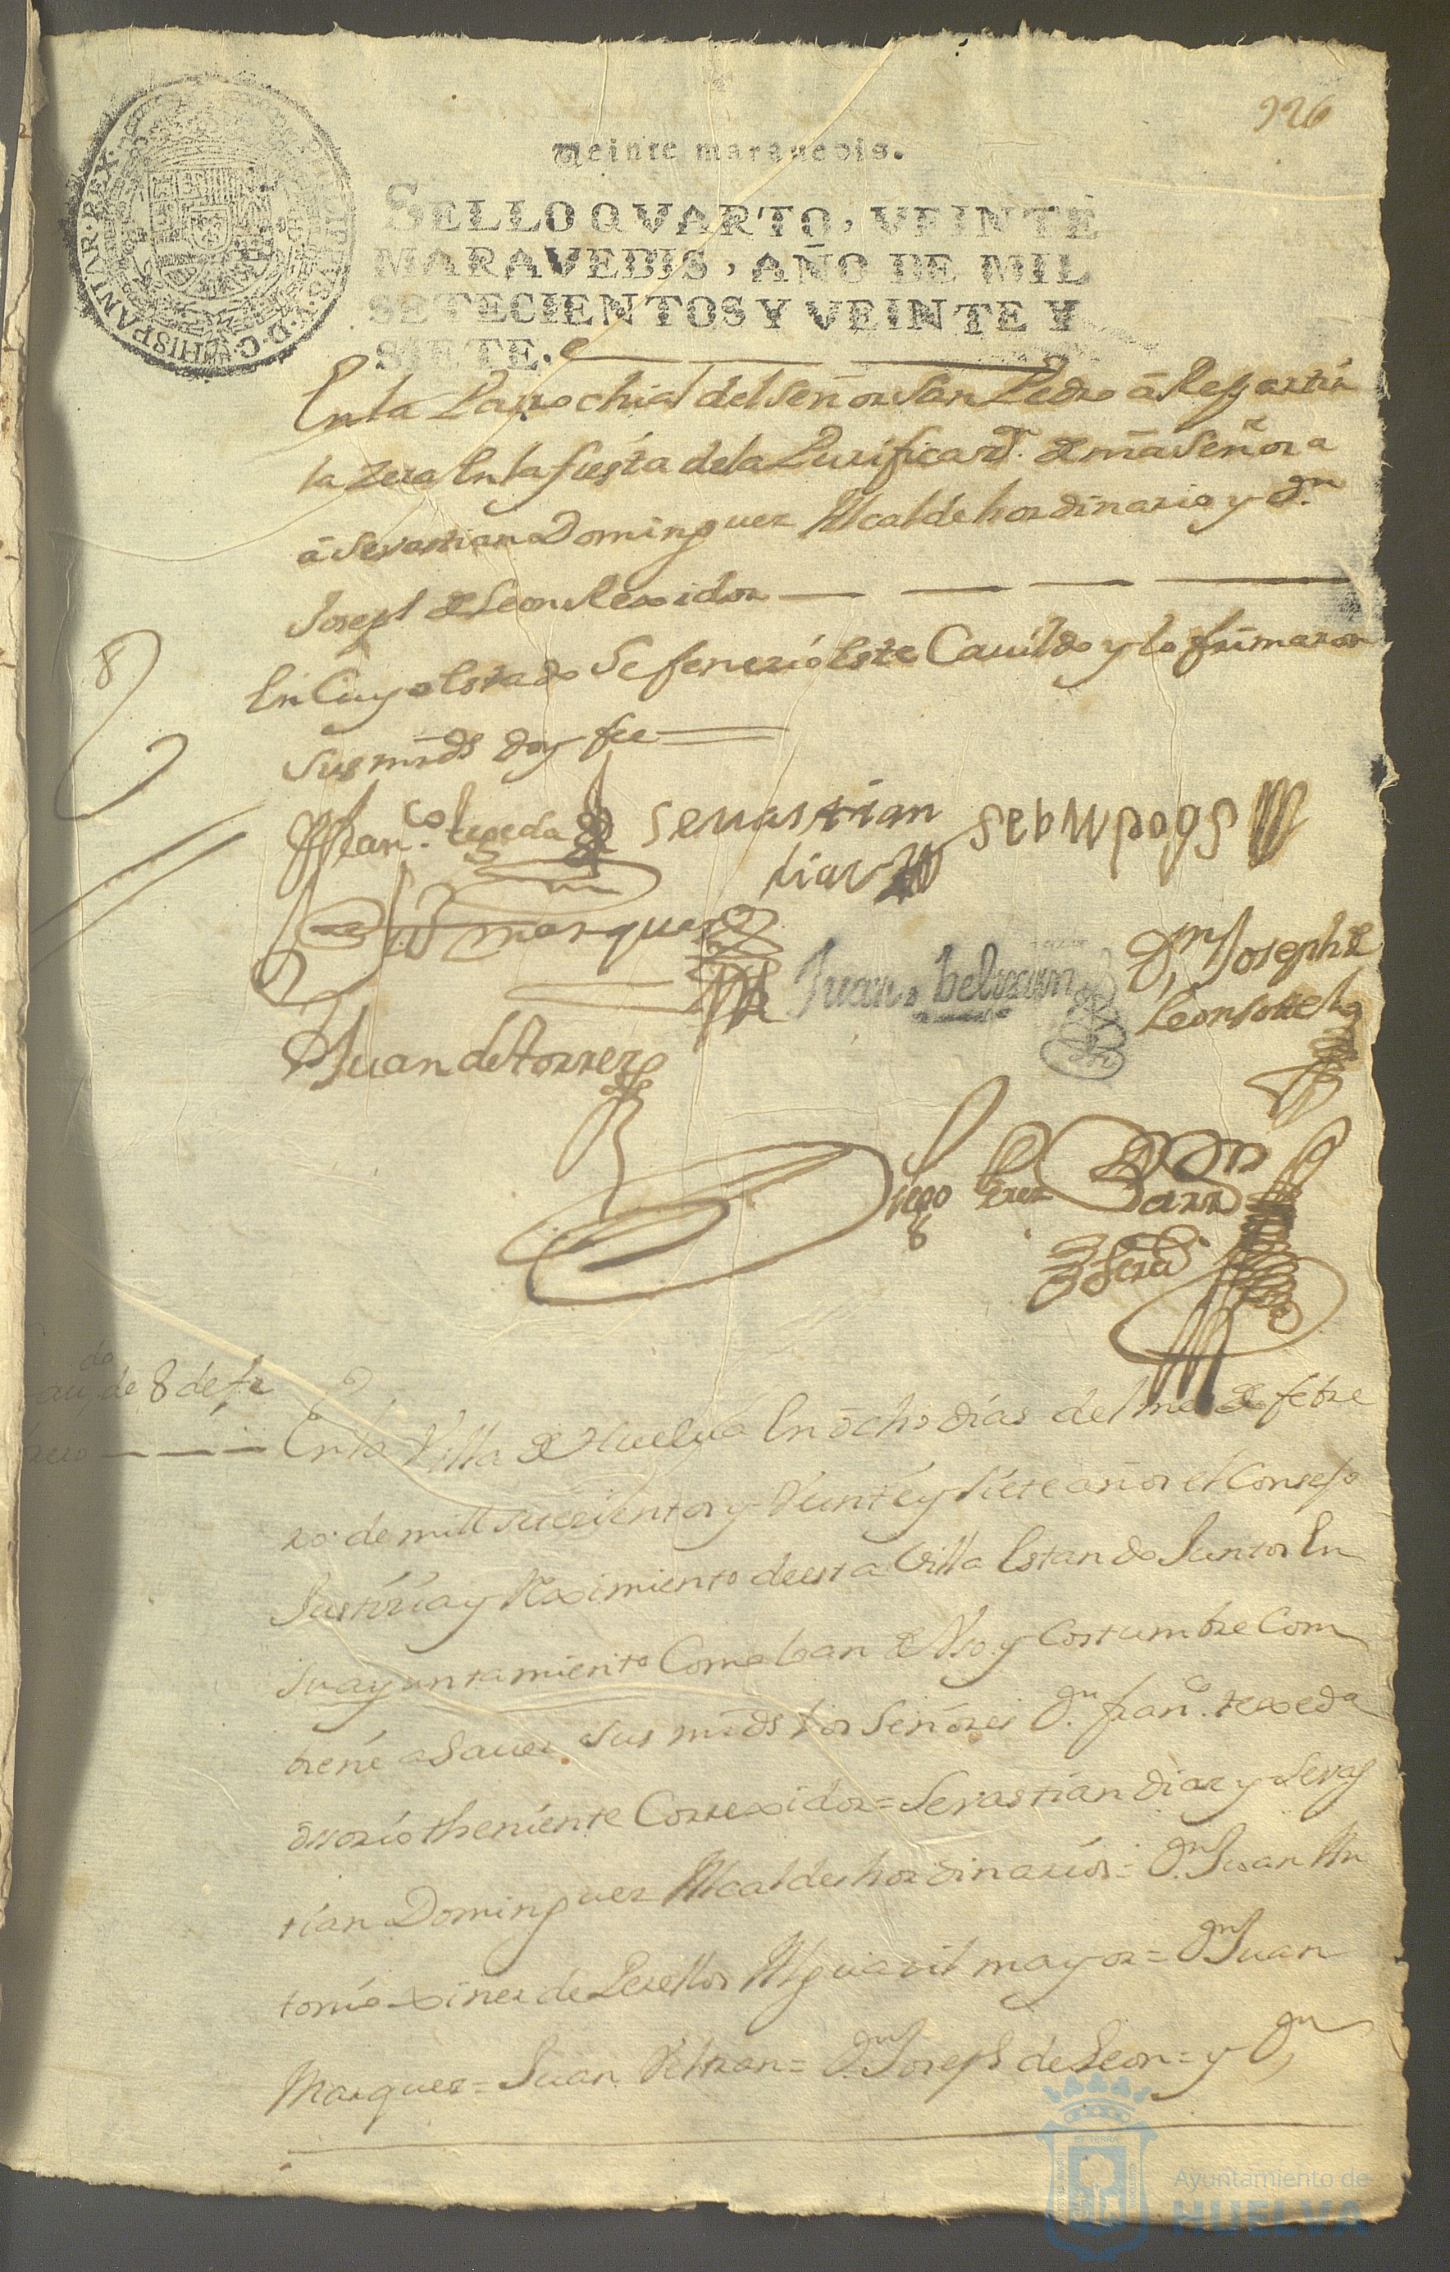 926
Veinte maravedis.
SELLO QVARTO, VEINTE
MARAVEDIS, AÑO DE MIL
SETECIENTOS Y VEINTE Y
SIETE.
HISPANIAR. REX.
En la Parrochial del Señor San Pedro â Repartir
la Zera En la fiesta de la Purificazn. de nra Señora
â Sevastian Dominguez Alcalde hordinario y Dn.
Joseph de Leon Rexidor
En Cuyo Estado Se fenezio Este Cauildo y lo firmaron
Sus mrds doy fee
Franco. texeda
Sevastian
diaz
Marquez
Juan beltran
Dn Joseph de
Leon
Juan de torres
Diego Perez
de 8 de fe
En la Villa de Huelua En ôcho dias del mes de febre
ro. de mill setezientos y Veinte y Siete años el Consejo
Justizia y Reximiento de esta Villa Estando Juntos En
su ayuntamiento Como lo an de Vso y Costumbre Com
biene a Sauer Sus mrds los Señores Dn. Franco. texeda
osorio theniente Correxidor = Sevastian Diaz y Sevas
tian Dominguez Alcaldes hordinarios = Dn. Juan An
tonio Ximez de Perellos Alguazil mayor = Dn Juan
Marquez = Juan Veltran = Dn. Joseph de Leon = y Dn
Ayuntamiento de
HUELVA